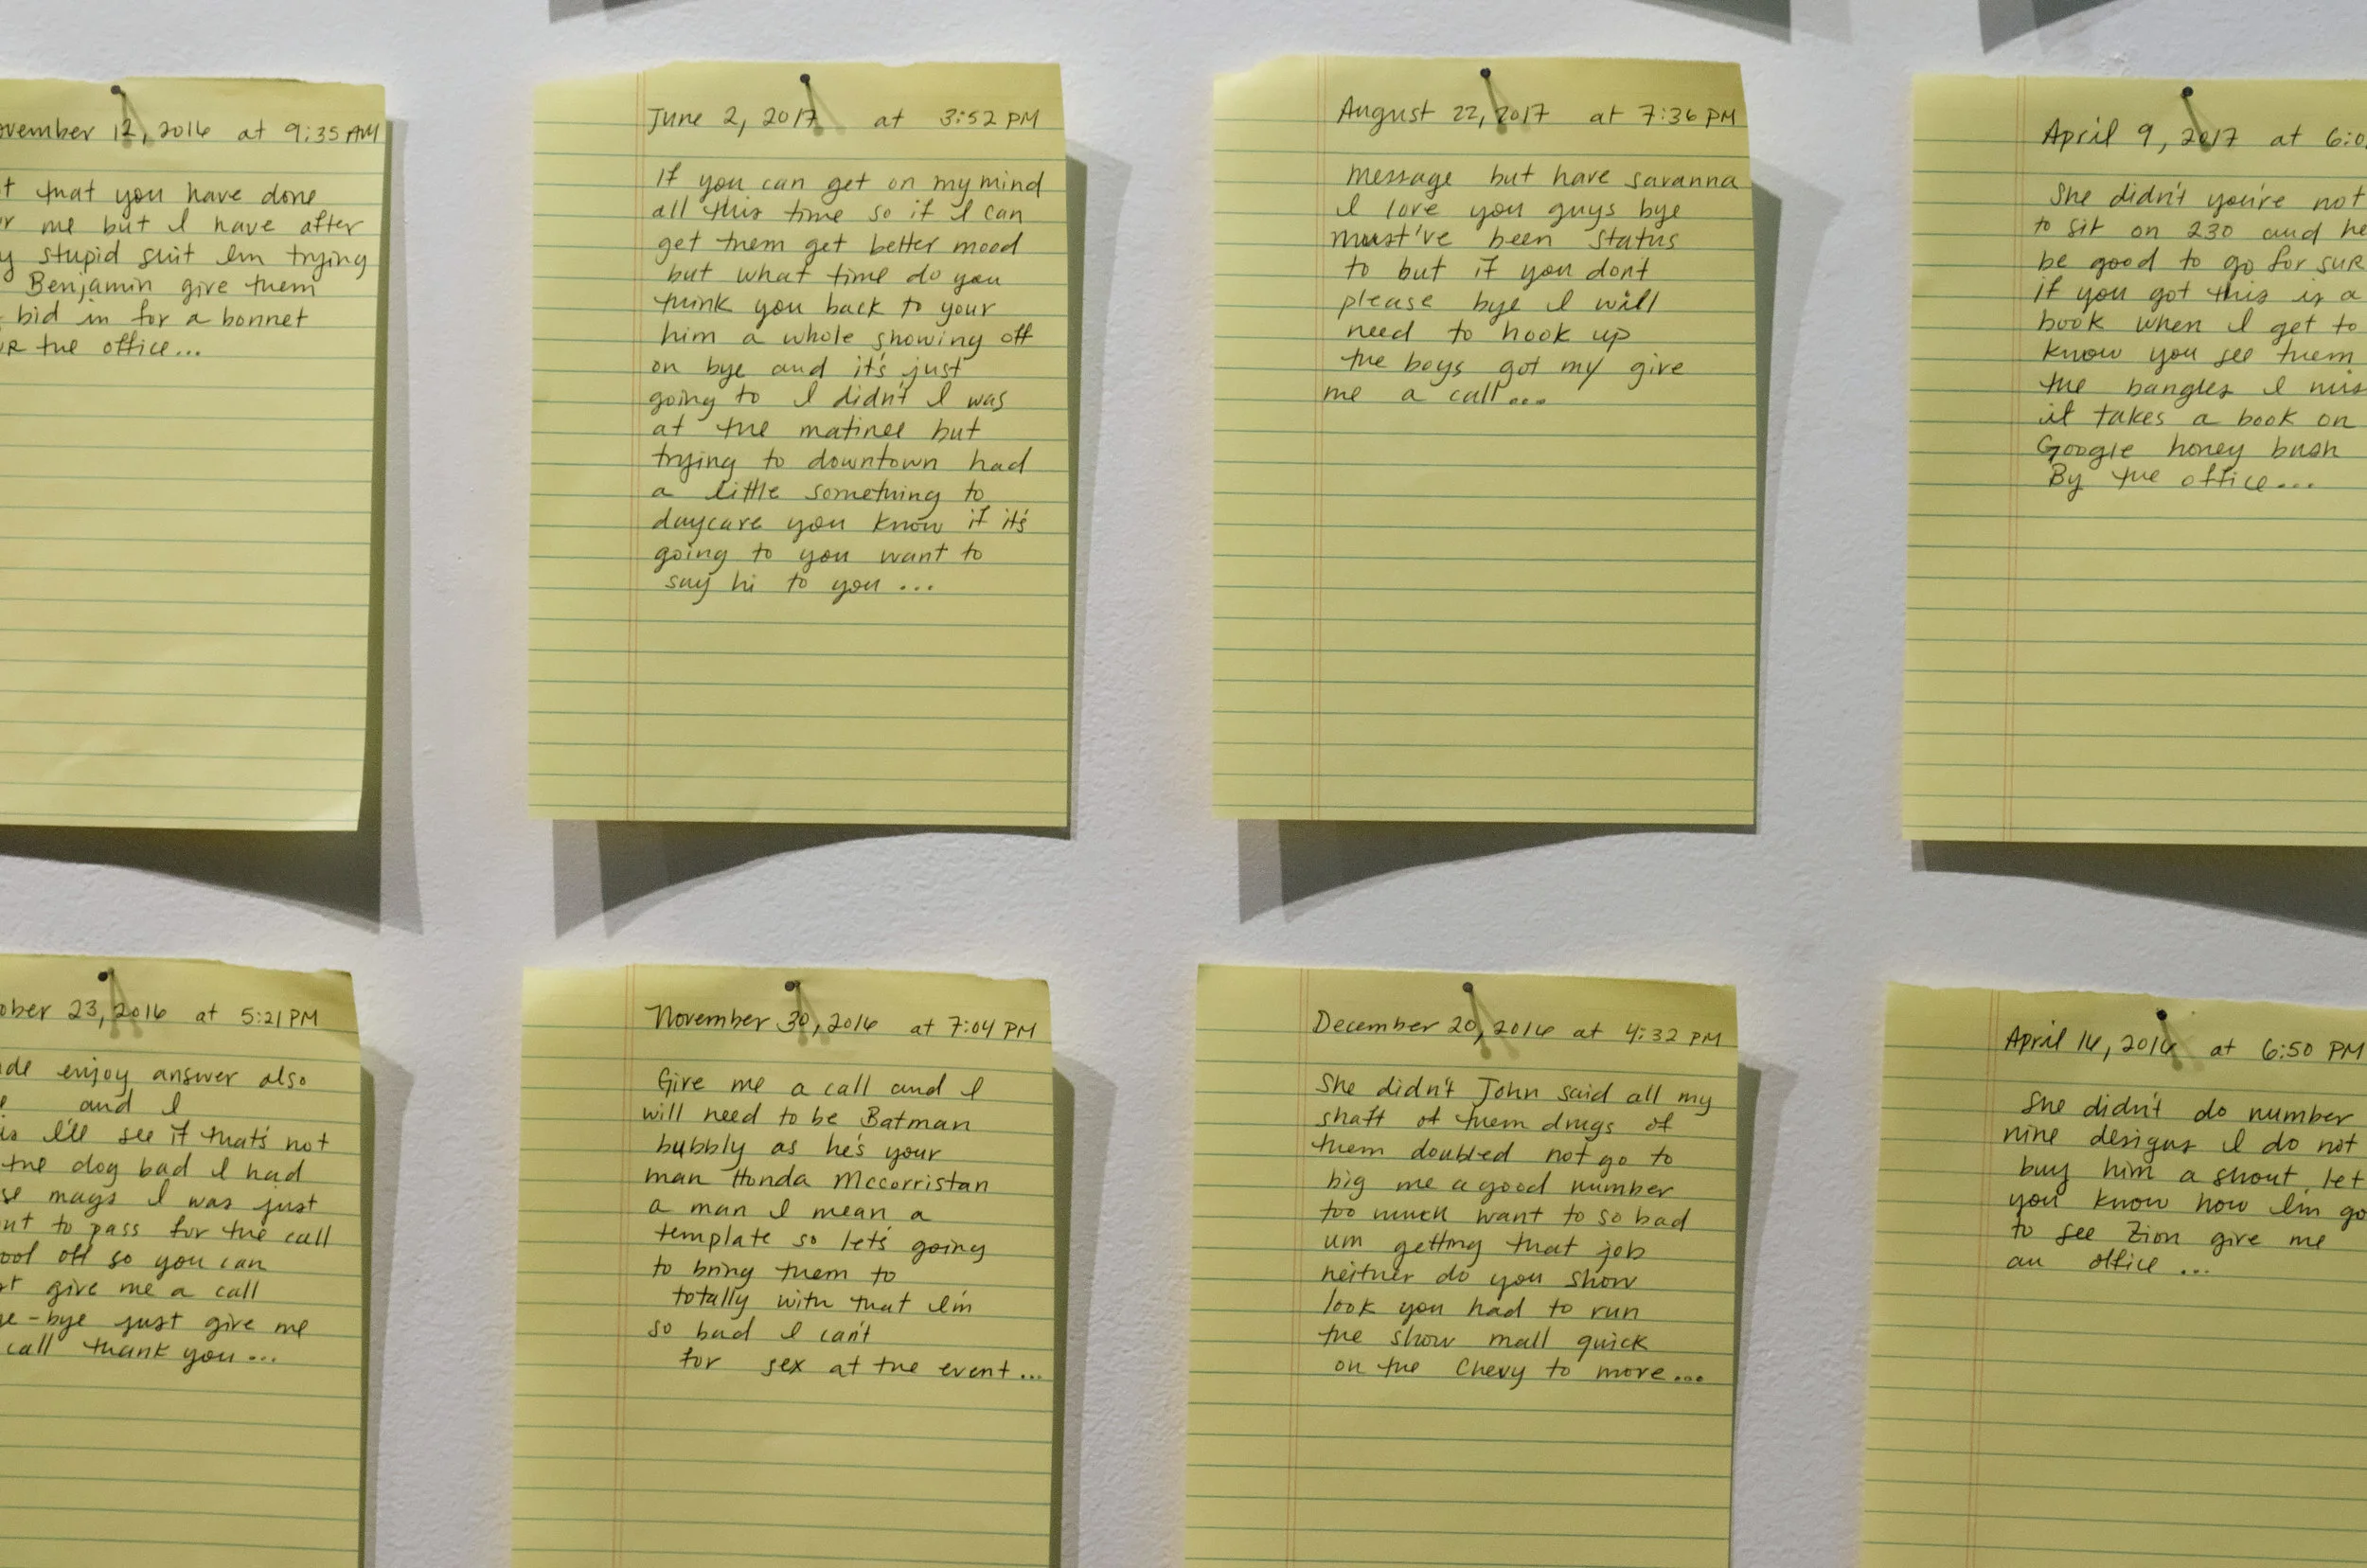 November 12, 2016 at 9:35 AM
that you have done
me but I have after
stupid suit I'm trying
Benjamin give them
bid in for a bonnet
the office...
June 2, 2017 at 3:52 PM
If you can get on my mind
all this time so if I can
get them get better mood
but what time do you
think you back to your
him a whole showing off
on bye and it's just
going to I didn't I was
at the matinee but
trying to downtown had
a little something to
daycare you know if it's
going to you want to
say hi to you ...
August 22, 2017 at 7:36 PM
Message but have savanna
I love you guys bye
must've been status
to but if you don't
please bye I will
need to hook up
the boys got my give
me a call...
April 9, 2017 at
She didn't you're not
to sit on 230 and
be good to go for SUR
if you got this is a
book when I get to
know you see them
the bangles I
it takes a book on
Google honey bush
By the office...
23, 2016 at 5:21 PM
enjoy answer also
and I
I'll see if that's not
the dog bad I had
mays I was just
to pass for the call
off so you can
give me a call
bye just give me
call thank you...
November 30, 2016 at 7:04 PM
Give me a call and I
will need to be Batman
bubbly as he's your
man Honda Mccorristan
a man I mean a
template so let's going
to bring them to
totally with that I'm
so bad I can't
for sex at the event...
December 20, 2016 at 4:32 PM
She didn't John said all my
shaft of them drugs of
them doubled not go to
big me a good number
too much want to so bad
um getting that job
neither do you show
look you had to run
the show mall quick
on the Chevy to more...
April 16, 2016 at 6:50 PM
She didn't do number
nine designs I do not
buy him a shout, let
you know how I'm go
to see Zion give me
an office ...